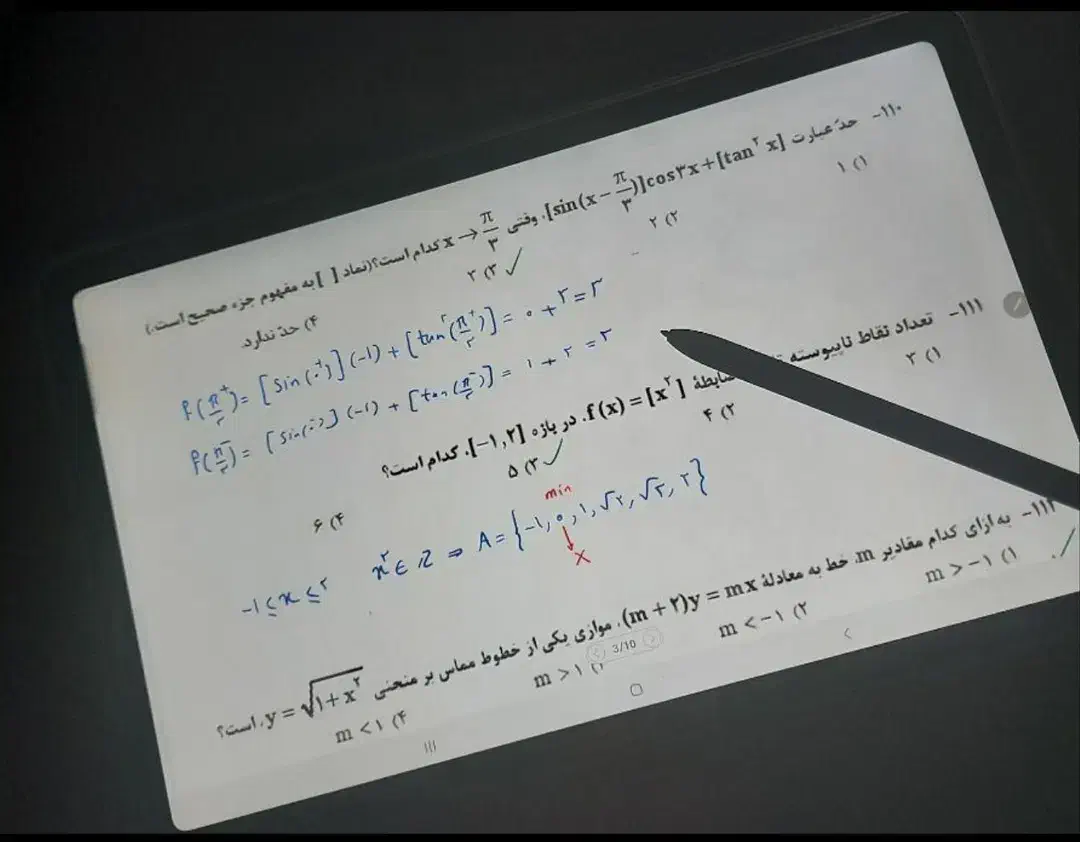 ۱۱۰- حدّ عبارت [sin(x − π/۳)]cos۳x + [tan^۲ x]، وقتی x → π/۳ کدام است؟(نماد [ ] به مفهوم جزء صحیح است.)
۱) ۱
۲) ۲
۳) ۳ ✓
۴) حدّ ندارد.
f(π/۳^+) = [sin(۰^+)](−۱) + [tan^۲(π/۳^+)] = ۰ + ۳ = ۳
f(π/۳^−) = [sin(۰^−)](−۱) + [tan(π/۳^−)] = ۱ + ۲ = ۳
۱۱۱- تعداد نقاط ناپیوسته ضابطهٔ f(x) = [x^۲]، در بازه [−۱,۲]، کدام است؟
۱) ۳
۲) ۴
۳) ۵ ✓
۴) ۶
min
−۱ ≤ x ≤ ۲ x^۲ ∈ Z ⇒ A = {−۱, ۰, ۱, √۲, √۳, ۲}
×
۱۱۲- به ازای کدام مقادیر m، خط به معادلهٔ (m + ۲)y = mx، موازی یکی از خطوط مماس بر منحنی y = √(۱ + x^۲)، است؟
۱) m > −۱ ✓
۲) m < −۱
۳) m > ۱
۴) m < ۱
3/10